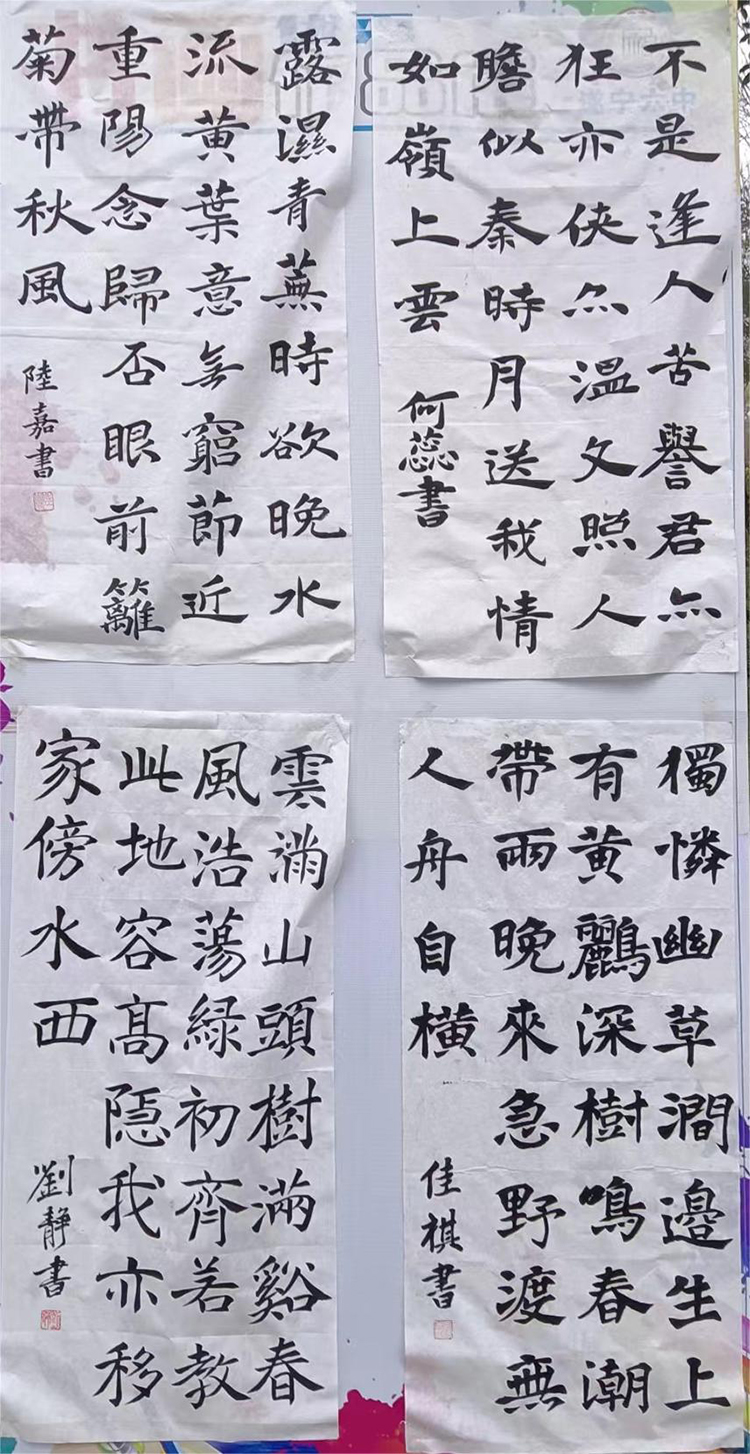 不是逢人苦譽君亦
狂亦俠亦温文照人
膽似秦時月送我情
如嶺上雲
何蕊書
露濕青蕪時欲晚水
流黄葉意無窮節近
重陽念歸否眼前籬
菊帶秋風
陸嘉書
獨憐幽草澗邊生上
有黄鸝深樹鳴春潮
帶雨晚來急野渡無
人舟自橫
佳祺書
雲滿山頭樹滿谿春
風浩蕩緑初齊若教
此地容髙隱我亦移
家傍水西
劉静書